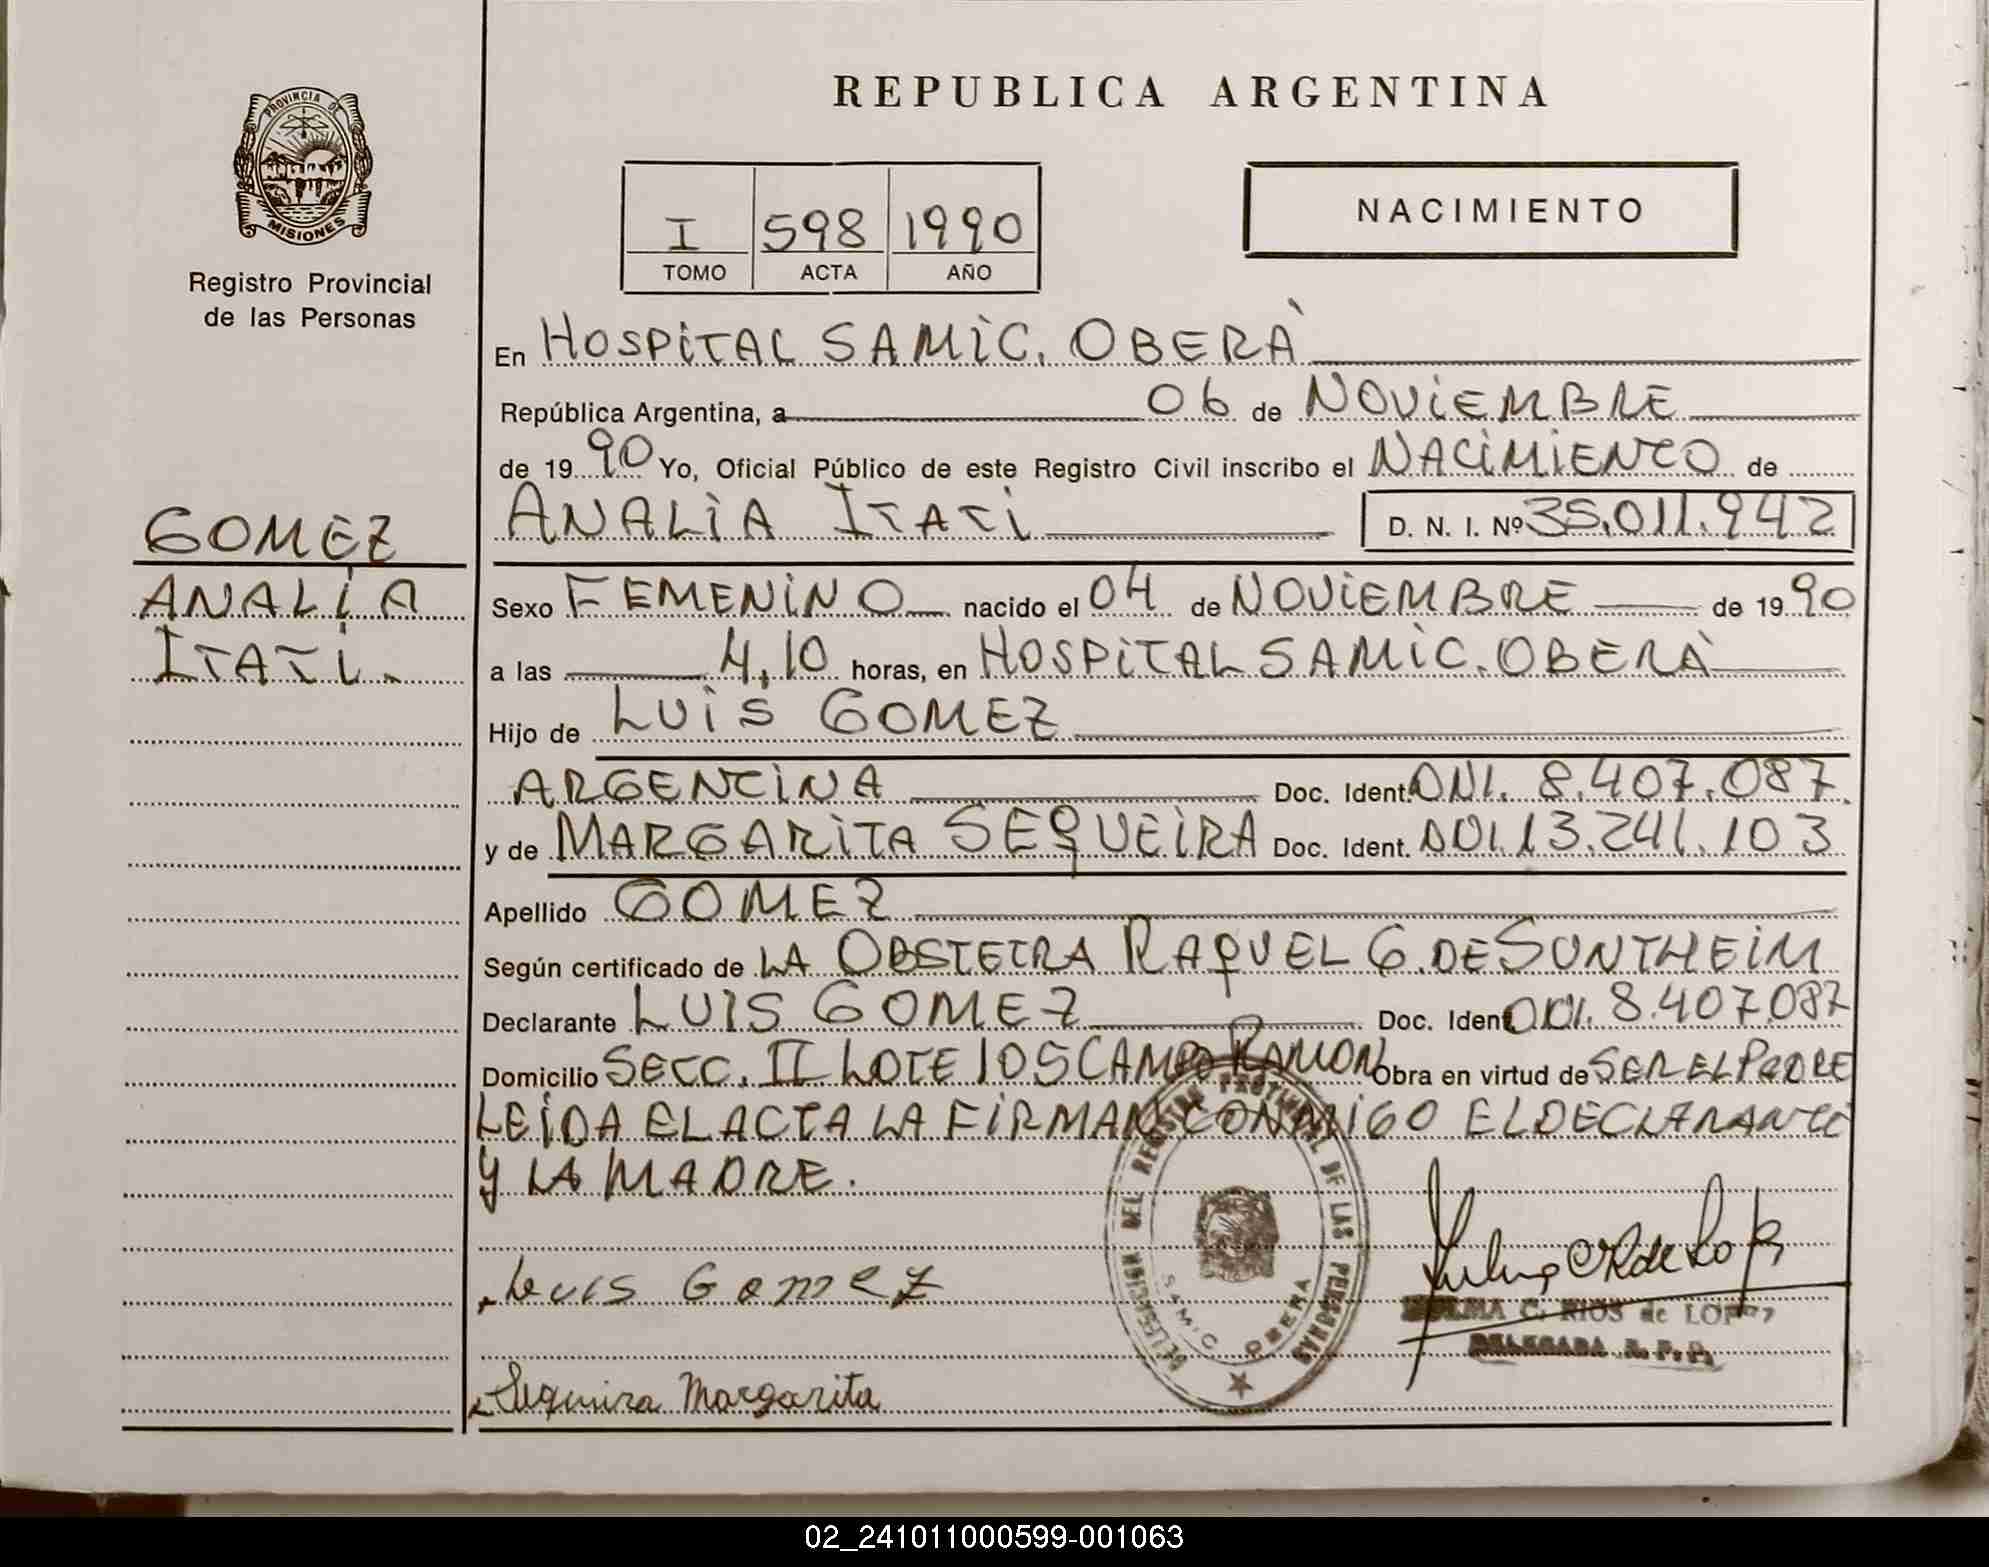 PROVINCIA DE
MISIONES
Registro Provincial
de las Personas
GOMEZ
ANALÍA
ITATÍ.
REPUBLICA ARGENTINA
I 598 1990
TOMO ACTA AÑO
NACIMIENTO
En HOSPITAL SAMIC. OBERÀ
República Argentina, a 06 de NOVIEMBRE
de 1990 Yo, Oficial Público de este Registro Civil inscribo el NACIMIENTO de
ANALÌA ITATÌ D. N. I. Nº 35.011.942
Sexo FEMENINO nacido el 04 de NOVIEMBRE de 1990
a las 4,10 horas, en HOSPITAL SAMIC. OBERÀ
Hijo de LUIS GOMEZ
ARGENTINA Doc. Ident. DNI. 8.407.087.
y de MARGARITA SEQUEIRA Doc. Ident. DNI. 13.241.103
Apellido GOMEZ
Según certificado de LA OBSTETRA RAQUEL G. DE SUNTHEIM
Declarante LUIS GOMEZ Doc. Ident. DNI. 8.407.087
Domicilio SECC. II LOTE 105 CAMPO RAMON Obra en virtud de SER EL PADRE
LEÍDA EL ACTA LA FIRMAN CONMIGO EL DECLARANTE
Y LA MADRE.
DEL REGISTRO PROVINCIAL DE LAS PERSONAS
SAMIC OBERA
Luis Gomez
C. RIOS de LOPEZ
DELEGADA R. P. P.
Sequeira Margarita
02_241011000599-001063